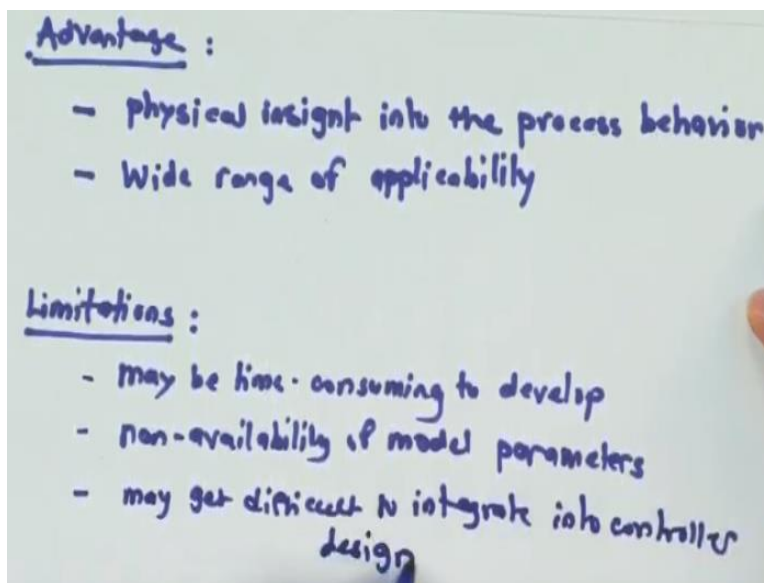 Advantage :
- physical insight into the process behavior
- Wide range of applicability
Limitations :
- may be time-consuming to develop
- non-availability of model parameters
- may get difficult to integrate into controller
design